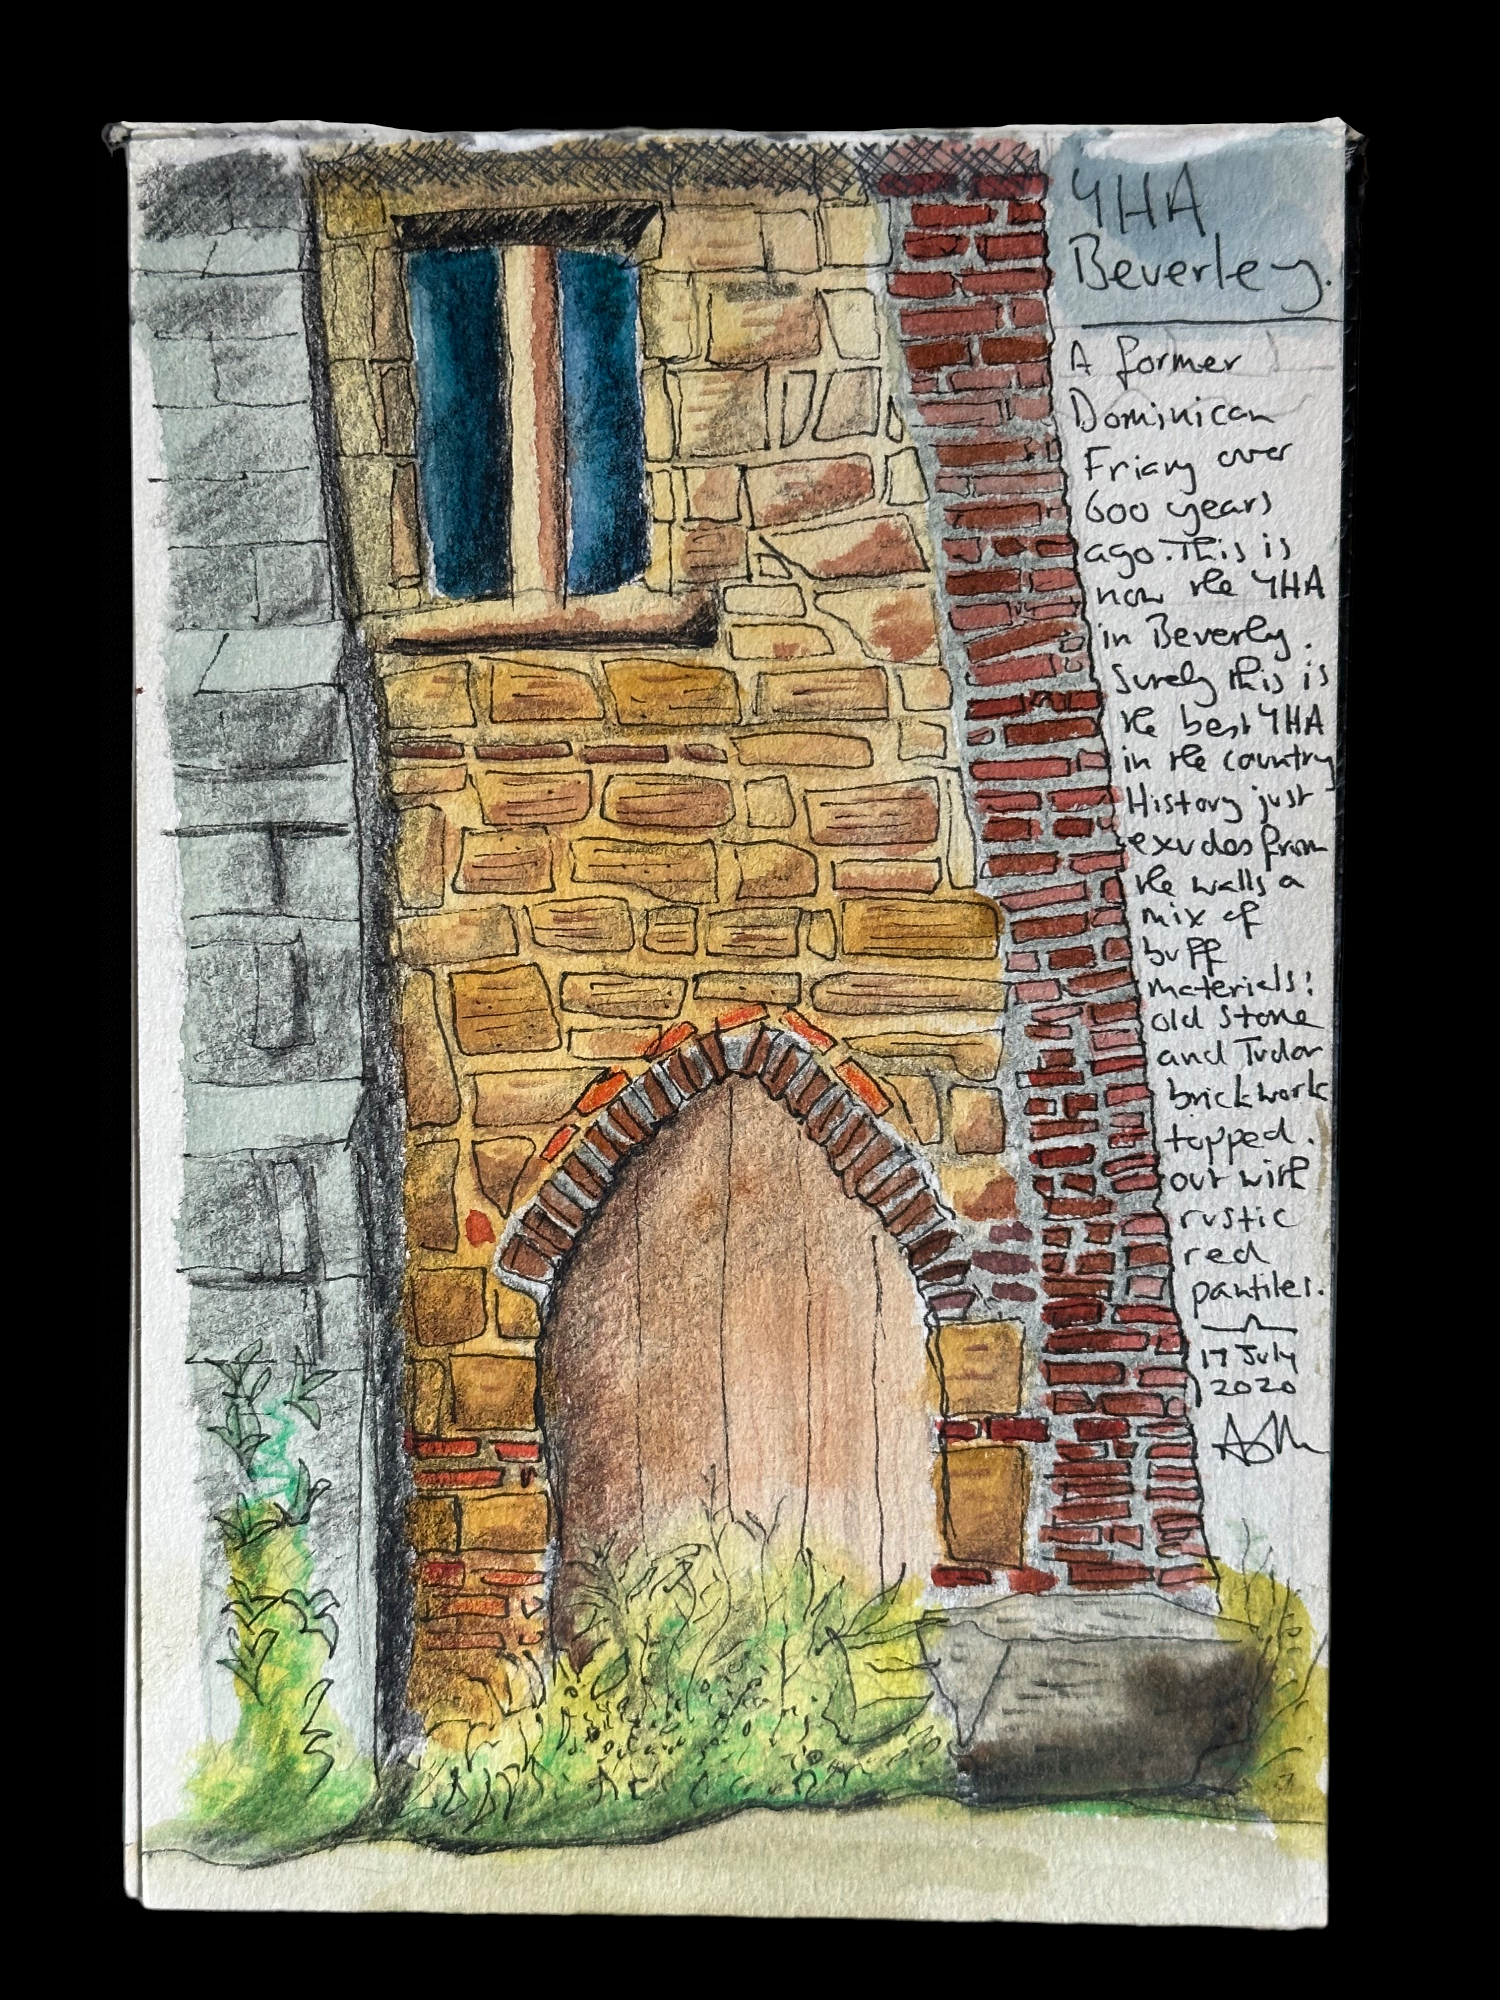 YHA
Beverley.
A former
Dominican
Friary over
600 years
ago. This is
now the YHA
in Beverly.
Surely this is
the best YHA
in the country
History just
exudes from
the walls a
mix of
buff
materials:
old stone
and Tudor
brickwork
topped.
out with
rustic
red
pantiles.
17 July
2020